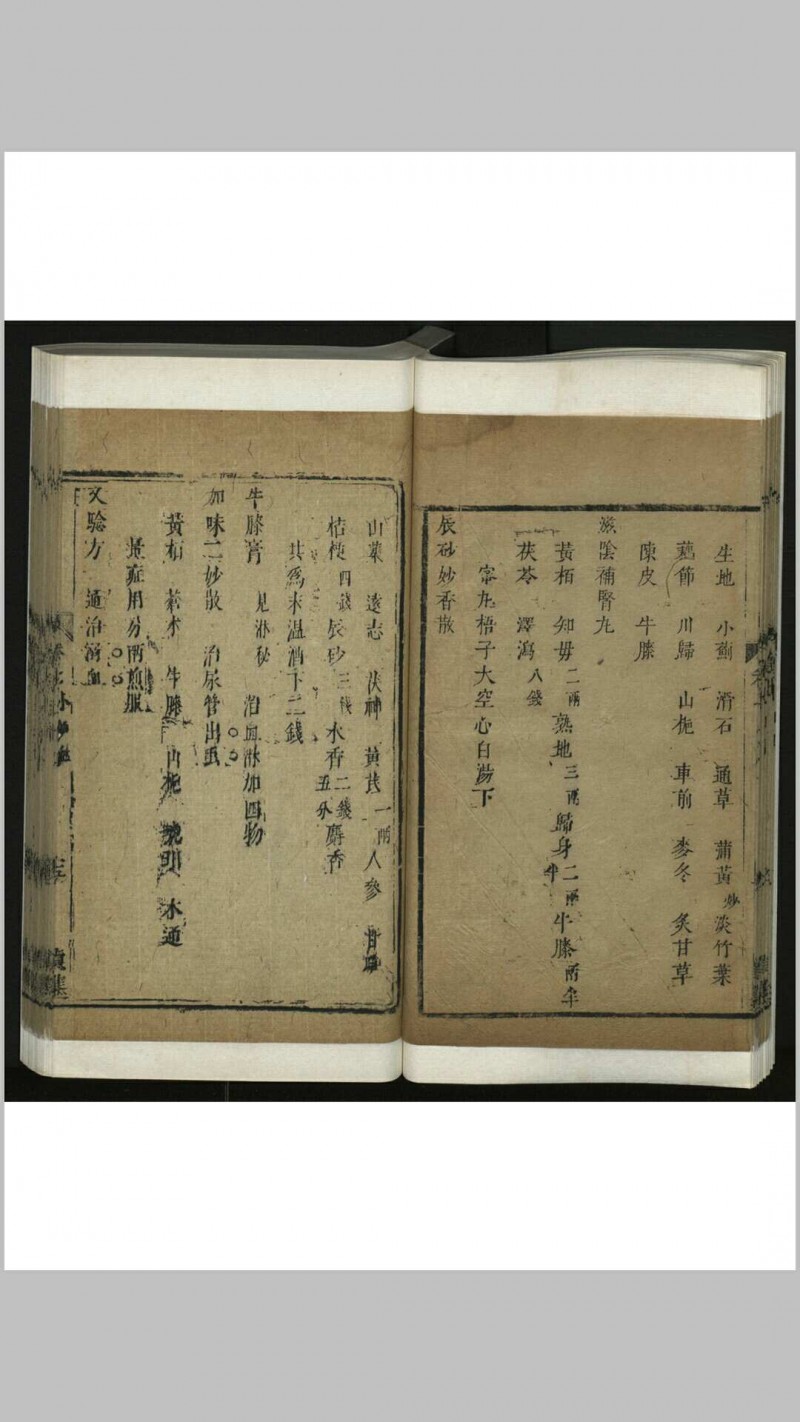 生地 小薊 滑石 通草 蒲黃炒 淡竹葉
藕節 川歸 山梔 車前 麥冬 炙甘草
陳皮 牛膝
滋陰補腎丸
黃栢 知母二兩 熟地三兩 歸身二兩半 牛膝兩半
茯苓 澤瀉八錢
蜜丸梧子大空心白湯下
辰砂妙香散
山藥 遠志 茯神 黃芪一兩 人參 甘草
桔梗四錢 辰砂三錢 木香二錢五分 麝香
共爲末温酒下二錢
牛膝膏 見淋秘 治血淋加四物
加味二妙散 治尿管出血
黃栢 蒼术 牛膝 山梔 琥珀 木通
用分兩煎服
又驗方 通治溺血